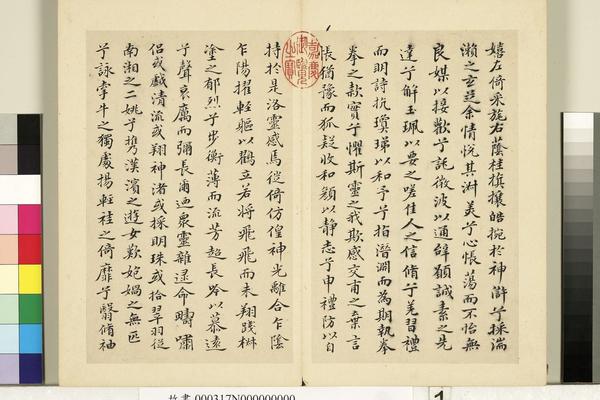 嬉左倚采旄右蔭桂旗攘皓捥於神滸兮採湍
瀨之玄芝余情悅其淑美兮心悵蕩而不怡無
良媒以接歡兮託微波以通辭願誠素之先
達兮解玉珮以要之嗟佳人之信脩兮羌習禮
而明詩抗瓊珶以和予兮指潛淵而為期執拳
拳之款實兮懼斯靈之我欺感交甫之棄言
悵猶豫而狐疑收和顏以静志兮申禮防以自
嘉慶御覽之寶
持於是洛靈感焉徙倚仿偟神光離合乍陰
乍陽擢輕軀以鶴立若將飛飛而未翔踐椒
塗之郁烈兮步衡薄而流芳超長吟以慕遠
兮聲哀厲而彌長爾迺衆靈雜遝命疇嘯
侶或戲清流或翔神渚或採明珠或拾翠羽從
南湘之二姚兮携漢濱之遊女歎匏媧之無匹
兮詠牽牛之獨處揚輕袿之倚靡兮翳脩袖
故書 000317N000000000
1